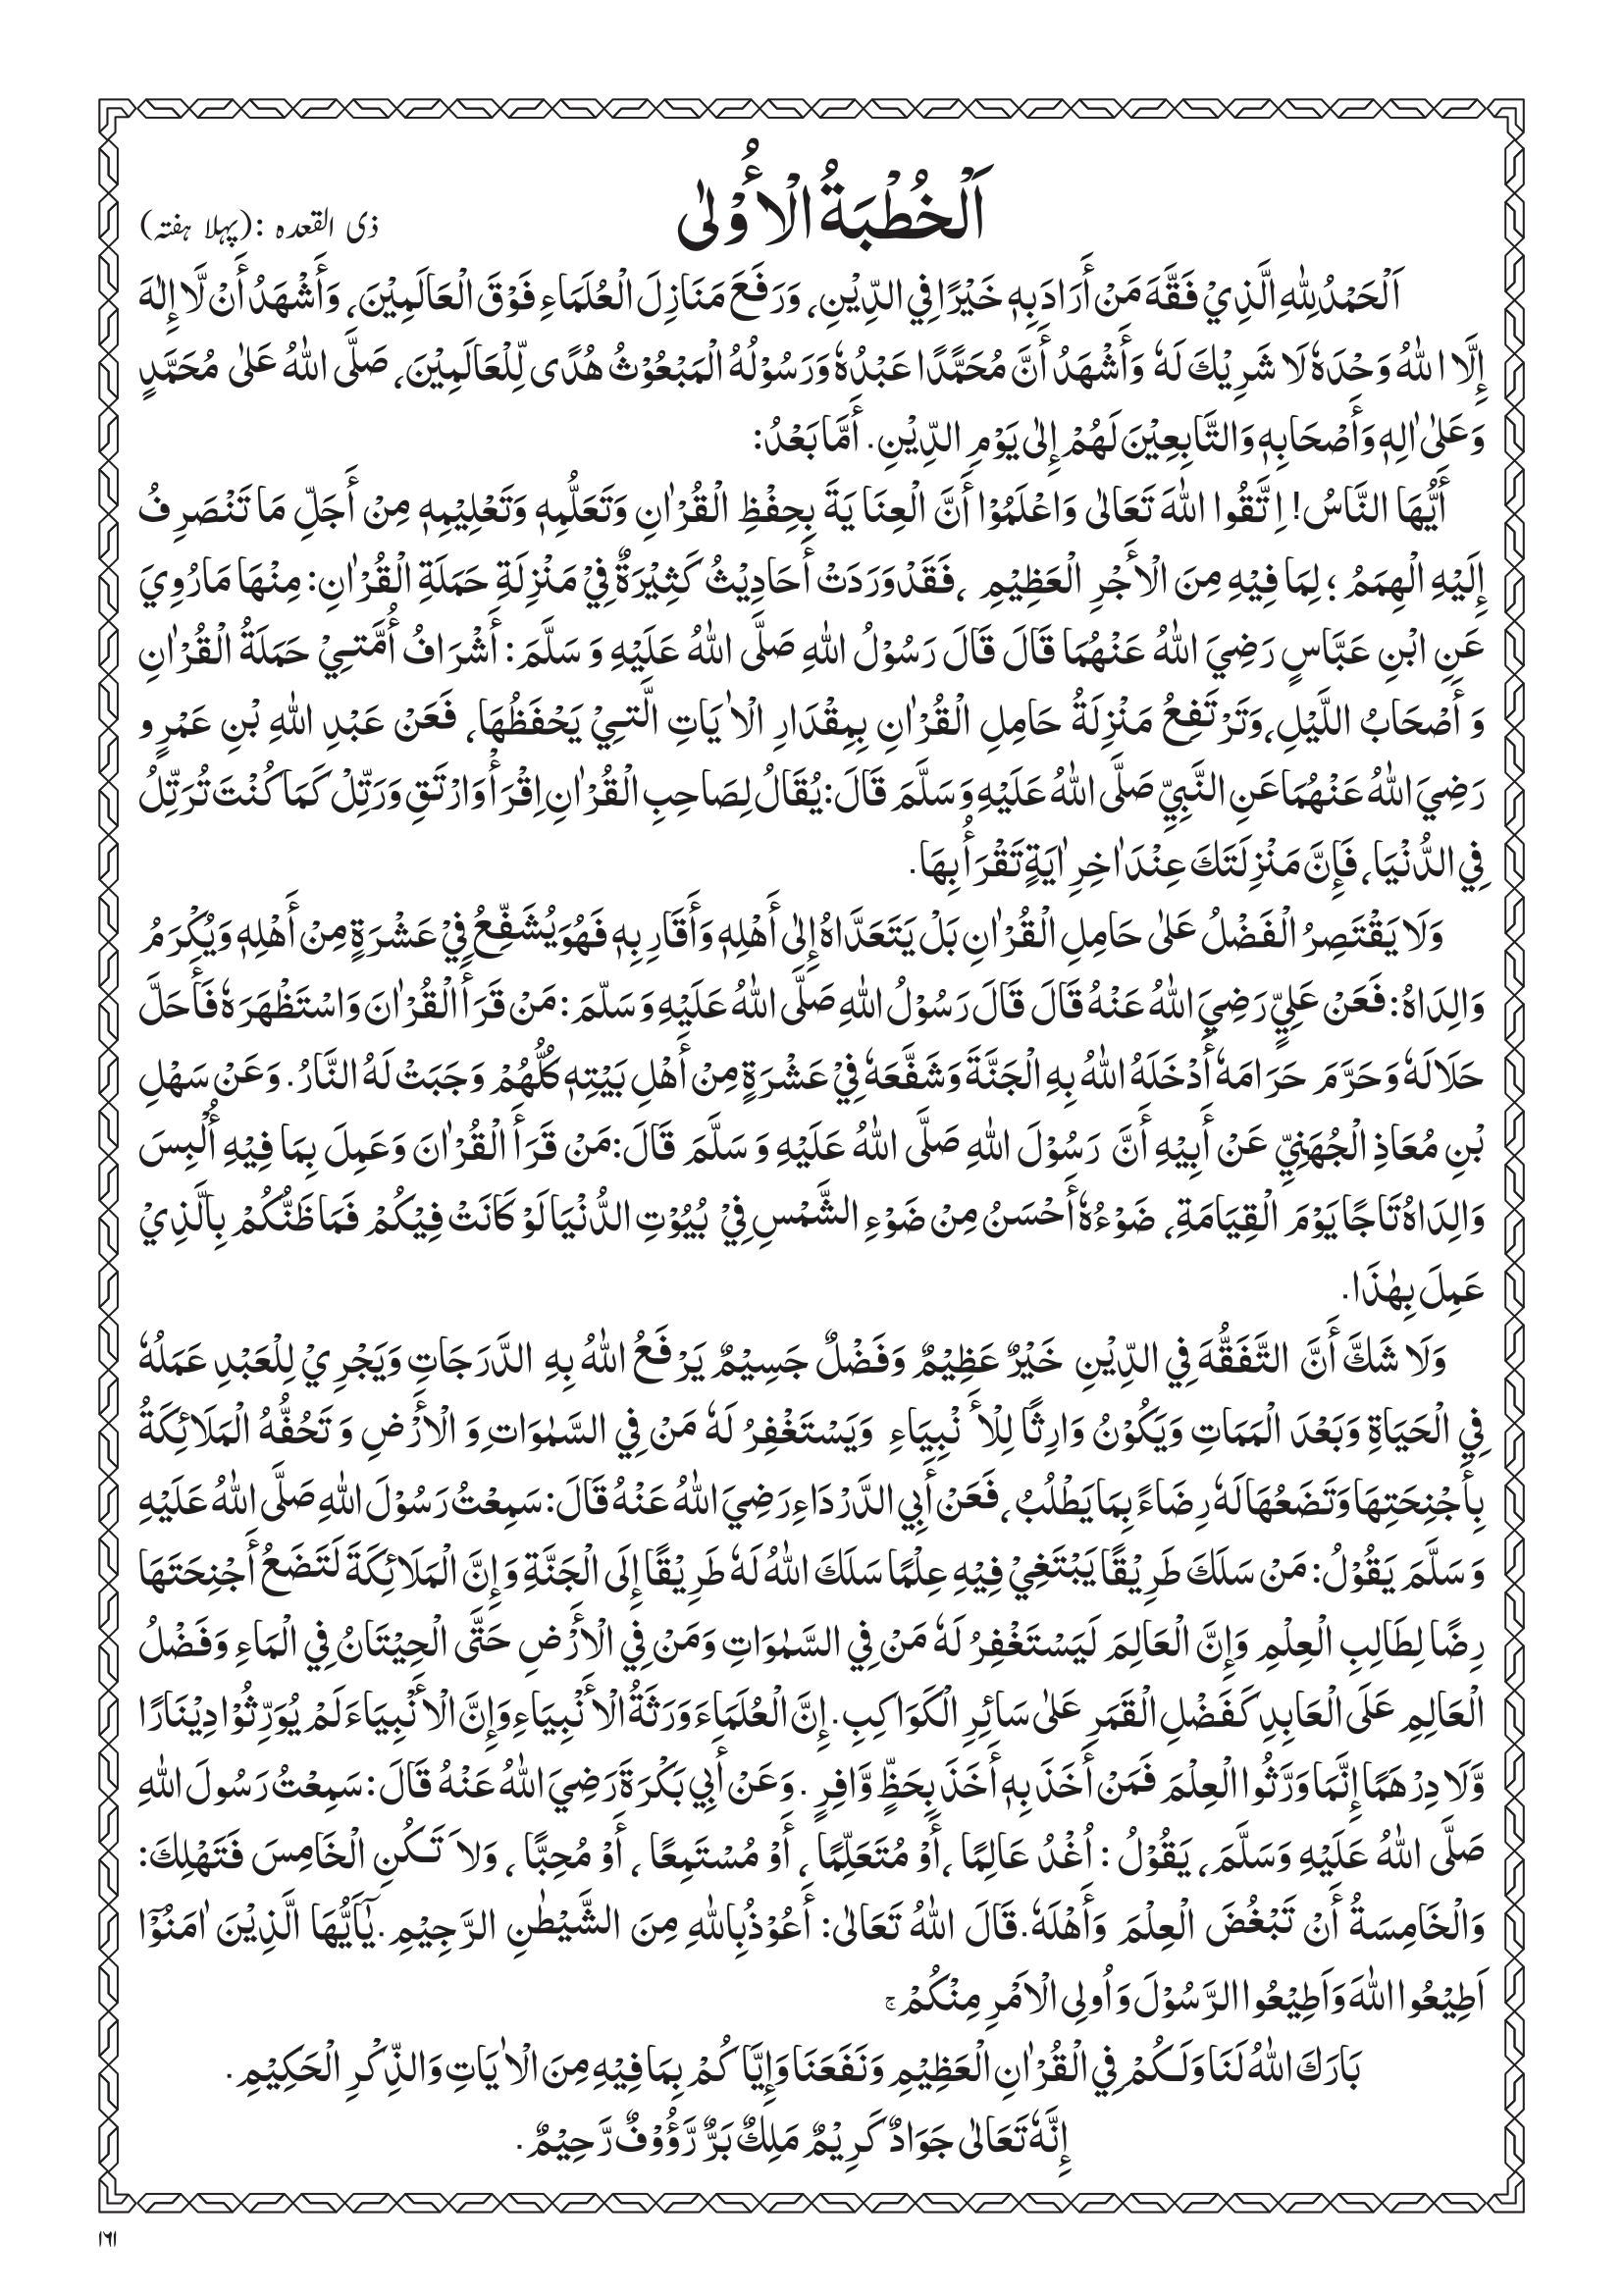 اَلْخُطْبَةُ الْأُوْلٰى
ذی القعدہ :(پہلا ہفتہ)
اَلْحَمْدُلِلّٰهِ الَّذِيْ فَقَّهَ مَنْ أَرَادَ بِهٖ خَيْرًا فِي الدِّيْنِ، وَرَفَعَ مَنَازِلَ الْعُلَمَاءِ فَوْقَ الْعَالَمِيْنَ، وَأَشْهَدُ أَنْ لَّا إِلٰهَ
إِلَّا اللّٰهُ وَحْدَهٗ لَا شَرِيْكَ لَهٗ وَأَشْهَدُ أَنَّ مُحَمَّدًا عَبْدُهٗ وَرَسُوْلُهُ الْمَبْعُوْثُ هُدًى لِّلْعَالَمِيْنَ، صَلَّى اللّٰهُ عَلٰى مُحَمَّدٍ
وَعَلٰى اٰلِهٖ وَأَصْحَابِهٖ وَالتَّابِعِيْنَ لَهُمْ إِلٰى يَوْمِ الدِّيْنِ. أَمَّا بَعْدُ:
أَيُّهَا النَّاسُ! اِتَّقُوا اللّٰهَ تَعَالٰى وَاعْلَمُوْا أَنَّ الْعِنَايَةَ بِحِفْظِ الْقُرْاٰنِ وَتَعَلُّمِهٖ وَتَعْلِيْمِهٖ مِنْ أَجَلِّ مَا تَنْصَرِفُ
إِلَيْهِ الْهِمَمُ ؛ لِمَا فِيْهِ مِنَ الْأَجْرِ الْعَظِيْمِ ، فَقَدْ وَرَدَتْ أَحَادِيْثُ كَثِيْرَةٌ فِيْ مَنْزِلَةِ حَمَلَةِ الْقُرْاٰنِ: مِنْهَا مَا رُوِيَ
عَنِ ابْنِ عَبَّاسٍ رَضِيَ اللّٰهُ عَنْهُمَا قَالَ قَالَ رَسُوْلُ اللّٰهِ صَلَّى اللّٰهُ عَلَيْهِ وَ سَلَّمَ: أَشْرَافُ أُمَّتِيْ حَمَلَةُ الْقُرْاٰنِ
وَ أَصْحَابُ اللَّيْلِ، وَتَرْتَفِعُ مَنْزِلَةُ حَامِلِ الْقُرْاٰنِ بِمِقْدَارِ الْاٰيَاتِ الَّتِيْ يَحْفَظُهَا، فَعَنْ عَبْدِ اللّٰهِ بْنِ عَمْرٍو
رَضِيَ اللّٰهُ عَنْهُمَا عَنِ النَّبِيِّ صَلَّى اللّٰهُ عَلَيْهِ وَ سَلَّمَ قَالَ: يُقَالُ لِصَاحِبِ الْقُرْاٰنِ اِقْرَأْ وَارْتَقِ وَرَتِّلْ كَمَا كُنْتَ تُرَتِّلُ
فِي الدُّنْيَا، فَإِنَّ مَنْزِلَتَكَ عِنْدَ اٰخِرِ اٰيَةٍ تَقْرَأُ بِهَا.
وَلَا يَقْتَصِرُ الْفَضْلُ عَلٰى حَامِلِ الْقُرْاٰنِ بَلْ يَتَعَدَّاهُ إِلٰى أَهْلِهٖ وَأَقَارِبِهٖ فَهُوَ يُشَفِّعُ فِيْ عَشْرَةٍ مِنْ أَهْلِهٖ وَيُكْرَمُ
وَالِدَاهُ: فَعَنْ عَلِيٍّ رَضِيَ اللّٰهُ عَنْهُ قَالَ قَالَ رَسُوْلُ اللّٰهِ صَلَّى اللّٰهُ عَلَيْهِ وَ سَلَّمَ: مَنْ قَرَأَ الْقُرْاٰنَ وَاسْتَظْهَرَهٗ فَأَحَلَّ
حَلَالَهٗ وَحَرَّمَ حَرَامَهٗ أَدْخَلَهُ اللّٰهُ بِهِ الْجَنَّةَ وَشَفَّعَهٗ فِيْ عَشْرَةٍ مِنْ أَهْلِ بَيْتِهٖ كُلُّهُمْ وَجَبَتْ لَهُ النَّارُ. وَعَنْ سَهْلِ
بْنِ مُعَاذِ الْجُهَنِيِّ عَنْ أَبِيْهِ أَنَّ رَسُوْلَ اللّٰهِ صَلَّى اللّٰهُ عَلَيْهِ وَ سَلَّمَ قَالَ: مَنْ قَرَأَ الْقُرْاٰنَ وَعَمِلَ بِمَا فِيْهِ أُلْبِسَ
وَالِدَاهُ تَاجًا يَوْمَ الْقِيَامَةِ، ضَوْءُهٗ أَحْسَنُ مِنْ ضَوْءِ الشَّمْسِ فِيْ بُيُوْتِ الدُّنْيَا لَوْ كَانَتْ فِيْكُمْ فَمَا ظَنُّكُمْ بِالَّذِيْ
عَمِلَ بِهٰذَا.
وَلَا شَكَّ أَنَّ التَّفَقُّهَ فِي الدِّيْنِ خَيْرٌ عَظِيْمٌ وَفَضْلٌ جَسِيْمٌ يَرْفَعُ اللّٰهُ بِهِ الدَّرَجَاتِ وَيَجْرِيْ لِلْعَبْدِ عَمَلُهٗ
فِي الْحَيَاةِ وَبَعْدَ الْمَمَاتِ وَيَكُوْنُ وَارِثًا لِلْأَنْبِيَاءِ وَيَسْتَغْفِرُ لَهٗ مَنْ فِي السَّمٰوَاتِ وَ الْأَرْضِ وَ تَحُفُّهُ الْمَلَائِكَةُ
بِأَجْنِحَتِهَا وَتَضَعُهَا لَهٗ رِضَاءً بِمَا يَطْلُبُ ، فَعَنْ أَبِي الدَّرْدَاءِ رَضِيَ اللّٰهُ عَنْهُ قَالَ: سَمِعْتُ رَسُوْلَ اللّٰهِ صَلَّى اللّٰهُ عَلَيْهِ
وَ سَلَّمَ يَقُوْلُ: مَنْ سَلَكَ طَرِيْقًا يَبْتَغِيْ فِيْهِ عِلْمًا سَلَكَ اللّٰهُ لَهٗ طَرِيْقًا إِلَى الْجَنَّةِ وَ إِنَّ الْمَلَائِكَةَ لَتَضَعُ أَجْنِحَتَهَا
رِضًا لِطَالِبِ الْعِلْمِ وَإِنَّ الْعَالِمَ لَيَسْتَغْفِرُ لَهٗ مَنْ فِي السَّمٰوَاتِ وَمَنْ فِي الْأَرْضِ حَتَّى الْحِيْتَانُ فِي الْمَاءِ وَفَضْلُ
الْعَالِمِ عَلَى الْعَابِدِ كَفَضْلِ الْقَمَرِ عَلٰى سَائِرِ الْكَوَاكِبِ. إِنَّ الْعُلَمَاءَ وَرَثَةُ الْأَنْبِيَاءِ وَإِنَّ الْأَنْبِيَاءَ لَمْ يُوَرِّثُوْا دِيْنَارًا
وَّلَا دِرْهَمًا إِنَّمَا وَرَّثُوا الْعِلْمَ فَمَنْ أَخَذَ بِهٖ أَخَذَ بِحَظٍّ وَّافِرٍ . وَعَنْ أَبِي بَكْرَةَ رَضِيَ اللّٰهُ عَنْهُ قَالَ: سَمِعْتُ رَسُولَ اللّٰهِ
صَلَّى اللّٰهُ عَلَيْهِ وَسَلَّمَ، يَقُوْلُ : اُغْدُ عَالِمًا ، أَوْ مُتَعَلِّمًا ، أَوْ مُسْتَمِعًا ، أَوْ مُحِبًّا ، وَلَا تَكُنِ الْخَامِسَ فَتَهْلِكَ:
وَالْخَامِسَةُ أَنْ تَبْغُضَ الْعِلْمَ وَأَهْلَهٗ. قَالَ اللّٰهُ تَعَالٰى: أَعُوْذُ بِاللّٰهِ مِنَ الشَّيْطٰنِ الرَّجِيْمِ. يٰٓاَيُّهَا الَّذِيْنَ اٰمَنُوْٓا
اَطِيْعُوا اللّٰهَ وَاَطِيْعُوا الرَّسُوْلَ وَاُولِى الْاَمْرِ مِنْكُمْ ۚ
بَارَكَ اللّٰهُ لَنَا وَلَكُمْ فِي الْقُرْاٰنِ الْعَظِيْمِ وَنَفَعَنَا وَإِيَّاكُمْ بِمَا فِيْهِ مِنَ الْاٰيَاتِ وَالذِّكْرِ الْحَكِيْمِ .
إِنَّهٗ تَعَالٰى جَوَادٌ كَرِيْمٌ مَلِكٌ بَرٌّ رَّؤُوْفٌ رَّحِيْمٌ .
۱۶۱